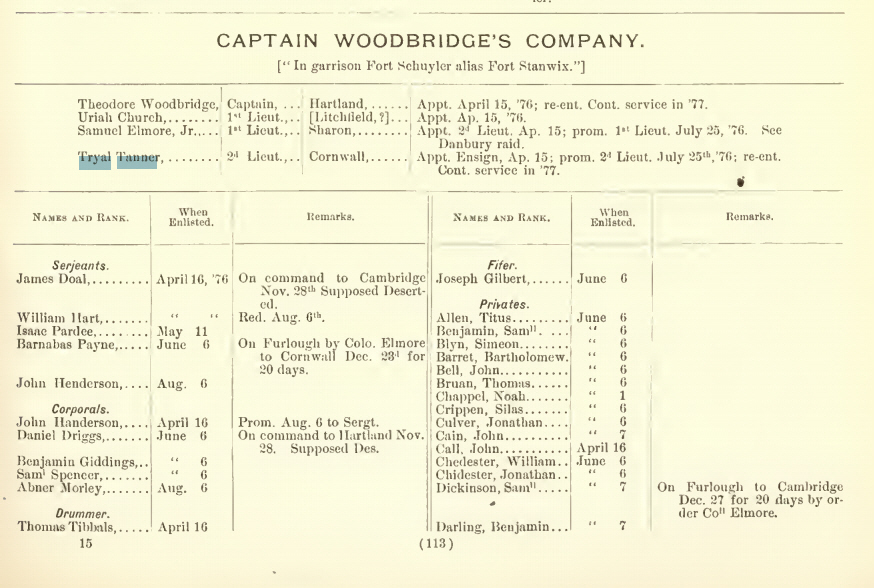 CAPTAIN WOODBRIDGE'S COMPANY.
["In garrison Fort Schuyler alias Fort Stanwix."]
Theodore Woodbridge, Captain, ... Hartland, ...... Appt. April 15, '76; re-ent. Cont. service in '77.
Uriah Church,........ 1st Lieut.,.. [Litchfield,?]... Appt. Ap. 15, '76.
Samuel Elmore, Jr.,... 1st Lieut.,.. Sharon,....... Appt. 2d Lieut. Ap. 15; prom. 1st Lieut. July 25, '76. See
Danbury raid.
Tryal Tanner, ........ 2d Lieut.,.. Cornwall,...... Appt. Ensign, Ap. 15; prom. 2d Lieut. July 25th, '76; re-ent.
Cont. service in '77.
NAMES AND RANK. When Enlisted. Remarks.
Serjeants.
James Doal,......... April 16, '76 On command to Cambridge
Nov. 28th Supposed Desert-
ed.
William Hart,....... " " Red. Aug. 6th.
Isaac Pardee,........ May 11
Barnabas Payne,..... June 6 On Furlough by Colo. Elmore
to Cornwall Dec. 23d for
20 days.
John Henderson,.... Aug. 6
Corporals.
John Handerson,.... April 16 Prom. Aug. 6 to Sergt.
Daniel Driggs,....... June 6 On command to Hartland Nov.
28. Supposed Des.
Benjamin Giddings,.. " 6
Saml Spencer,....... " 6
Abner Morley,....... Aug. 6
Drummer.
Thomas Tibbals,..... April 16
15
NAMES AND RANK. When Enlisted. Remarks.
Fifer.
Joseph Gilbert,...... June 6
Privates.
Allen, Titus......... June 6
Benjamin, Samll. .... " 6
Blyn, Simeon........ " 6
Barret, Bartholomew. " 6
Bell, John........... " 6
Bruan, Thomas...... " 6
Chappel, Noah....... " 1
Crippen, Silas....... " 6
Culver, Jonathan.... " 6
Cain, John.......... " 7
Call, John........... April 16
Chedester, William.. June 6
Chidester, Jonathan.. " 6
Dickinson, Samll..... " 7 On Furlough to Cambridge
Dec. 27 for 20 days by or-
der Coll Elmore.
Darling, Benjamin... " 7
(113)